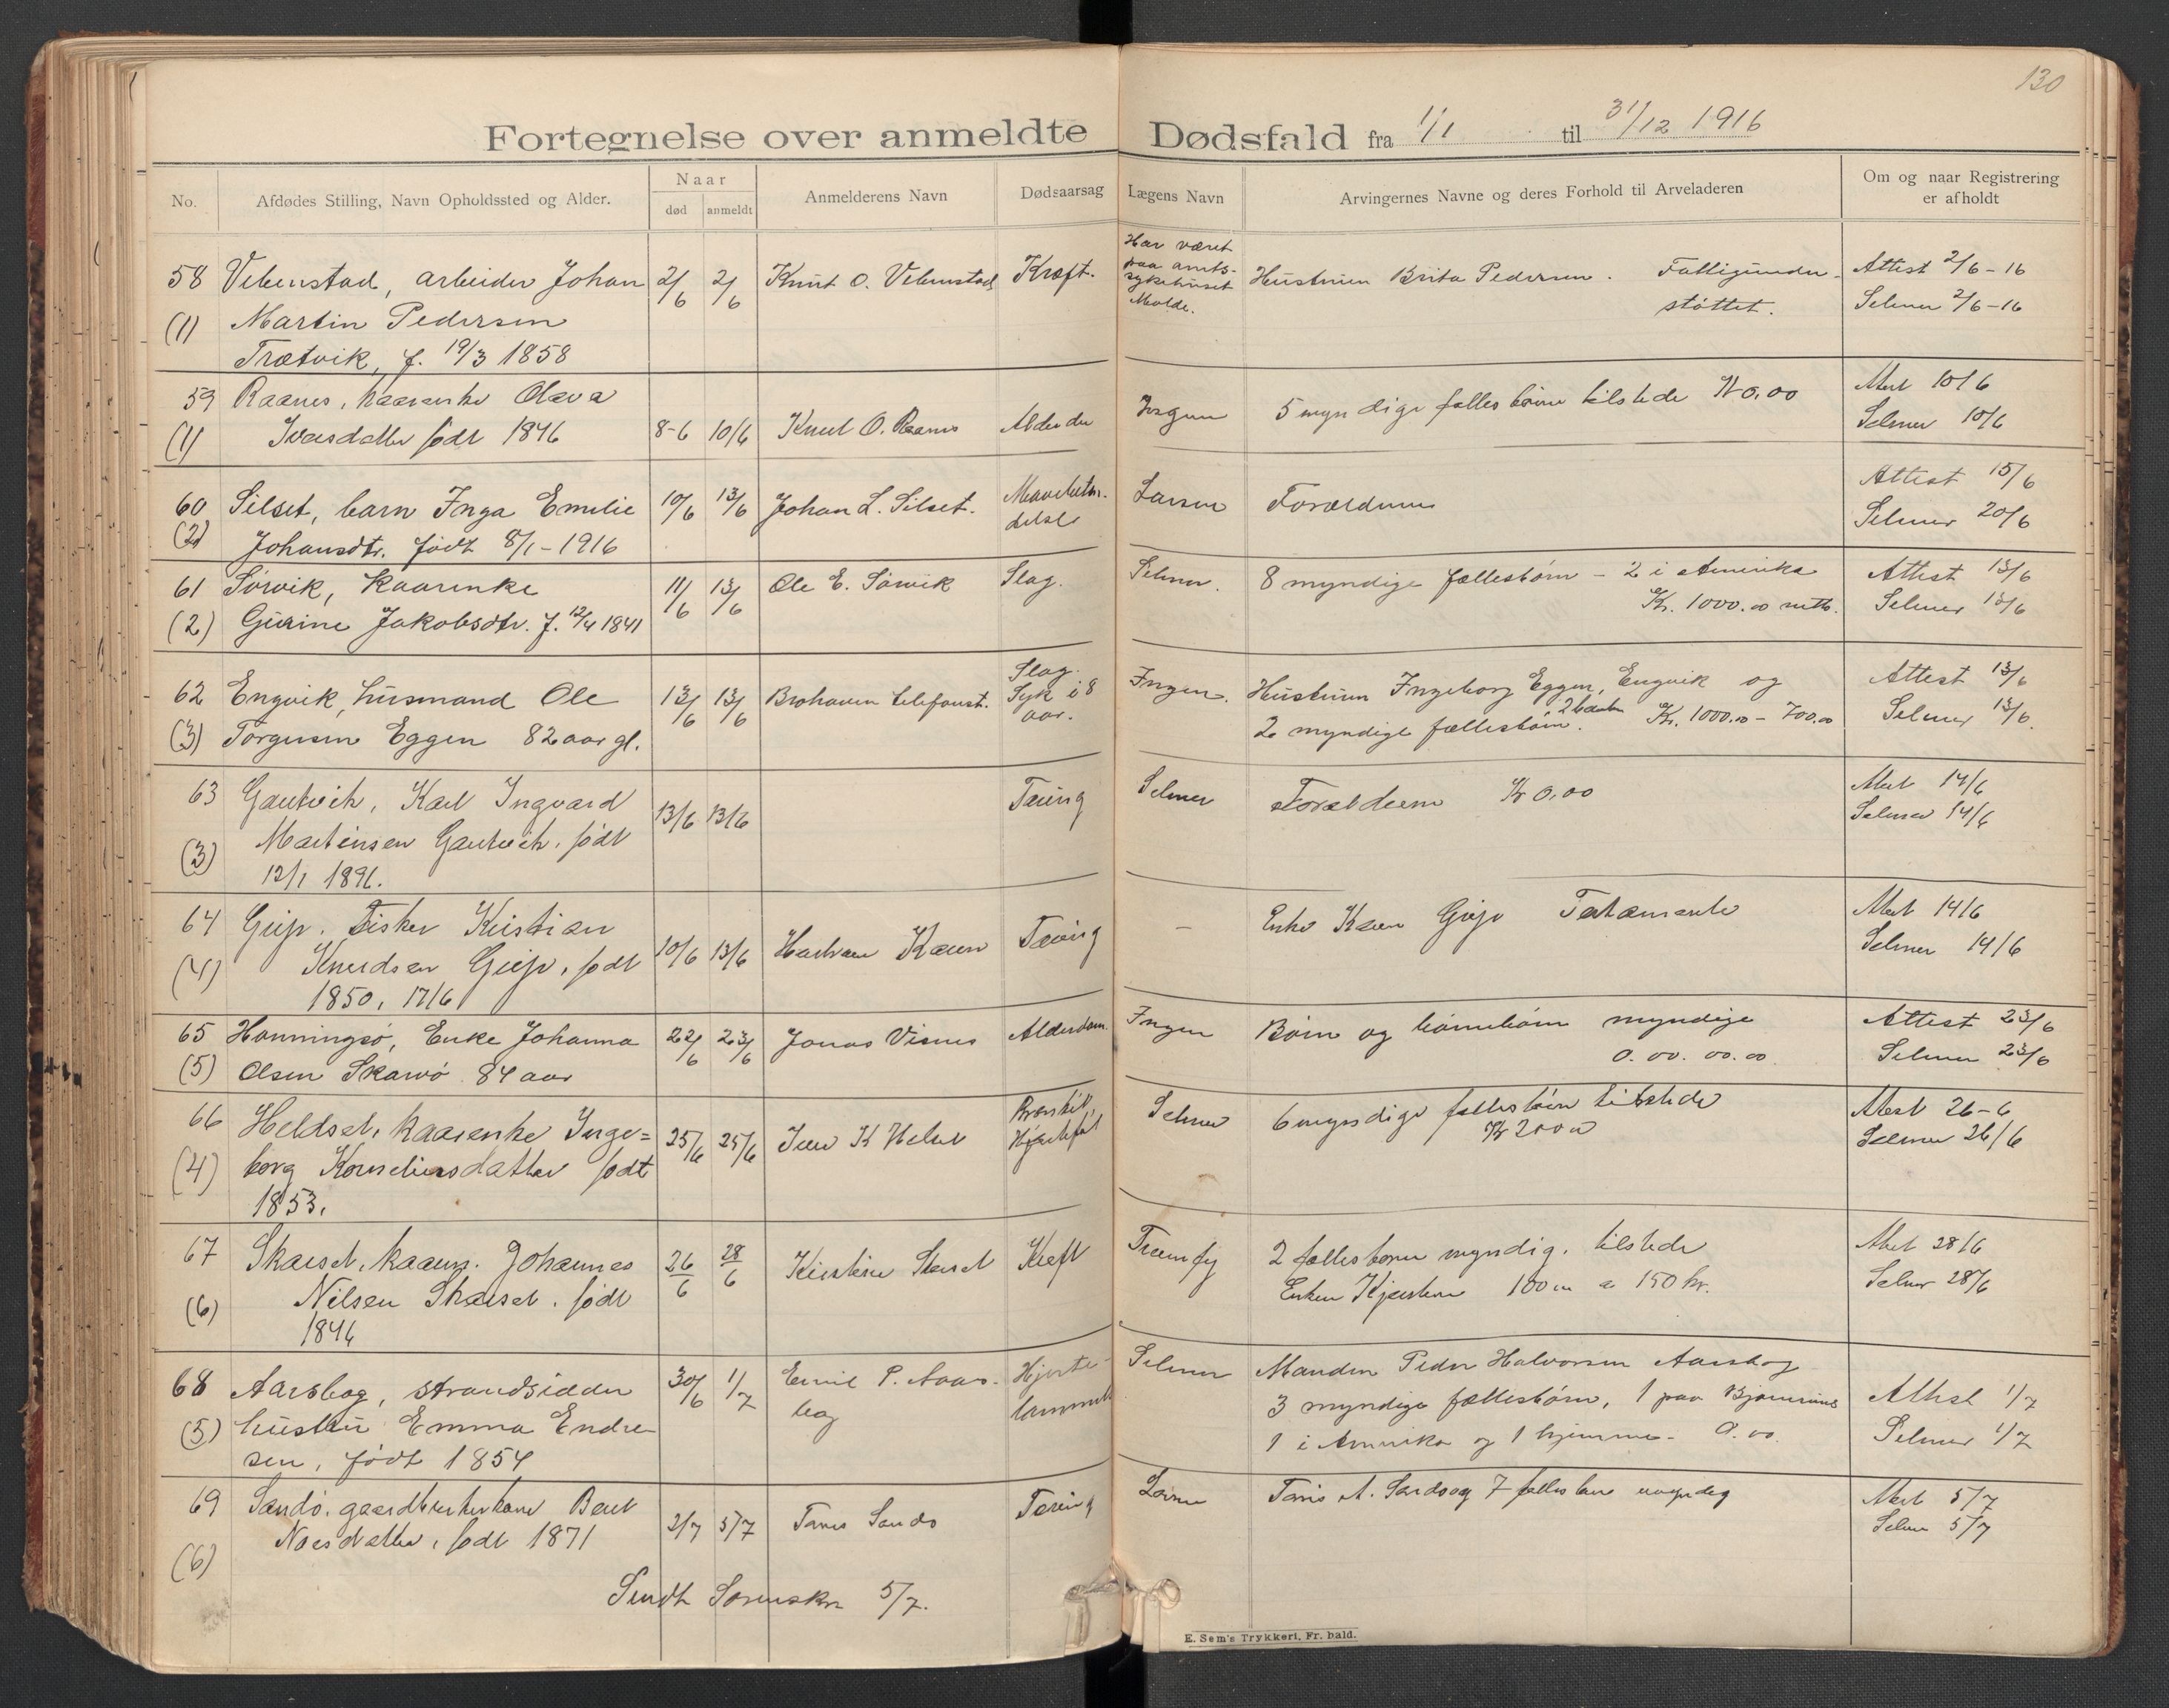 130
Fortegnelse over anmeldte Dødsfald fra 1/1 til 31/12 1916
No.
Afdødes Stilling, Navn Opholdssted og Alder.
Naar
død
anmeldt
Anmelderens Navn
Dødsaarsag
Lægens Navn
Arvingernes Navne og deres Forhold til Arveladeren
Om og naar Registrering
er afholdt
58 Vebenstad, arbeider Johan 2/6 2/6 Knut O. Vebenstad Kræft.
(1) Martin Pedersen
Trætvik, f. 19/3 1858
Har været
paa amts-
sykehuset
Molde.
Hustruen Brita Pedersen. Fattigunder-
støttet.
Attest 2/6-16
Selmer 2/6-16
59 Raanes, kaarenke Olava
(1) Iversdatter født 1846 8-6 10/6 Knut O. Raanes
Ingen 5 myndige fælles børn tilstede Kr 0,00
Attest 10/6
Selmer 10/6
60 Silset, barn Inga Emilie 10/6 13/6 Johan L. Silset.
(2) Johansdtr. født 8/1-1916
Larsen Forældrene
Attest 15/6
Selmer 20/6
61 Sørvik, kaarenke 11/6 13/6 Ole E. Sørvik Slag.
(2) Gurine Jakobsdtr. f. 12/4 1841
Selmer. 8 myndige fællesbørn - 2 i Amerika
Kr. 1000.00 netto.
Attest 13/6
Selmer 13/6
62 Engvik, husmand Ole 13/6 13/6 Brohaven telefonst.
(3) Torgersen Eggen 82 aar gl.
Slag.
Syk i 8
aar.
Ingen. Hustruen Ingeborg Eggen, Engvik og
2 myndige fællesbørn. Kr. 1000.00 - 700.00
Attest 13/6
Selmer 13/6.
63 Gautvik, Karl Ingvard 13/6 13/6 Tæring
(3) Martinsen Gautvik, født
12/1 1896.
Selmer Forældrene Kr 0,00
Attest 14/6
Selmer 14/6
64 Grip, Fisker Kristian 10/6 13/6 Tæring
(4) Knudsen Grip, født
1850, 17/6
- Enke Karen Grip Testamente
Attest 14/6
Selmer 14/6
65 Honningsø, Enke Johanna 22/6 23/6 Jonas Visnes Alderdom.
(5) Olsen Skarvø 84 aar
Ingen Børn og børnebørn myndige
0.00. 00.00
Attest 23/6
Selmer 23/6
66 Heldset, kaarenke Inge=
(4) borg Korneliusdatter født 25/6 25/6
1853.
Selmer 6 myndige fælles børn tilstede
Kr 2000
Attest 26-6
Selmer 26/6
67 Skarset, kaarm. Johannes 26/6 28/6 Kirstine Skarset Kræft
(6) Nilsen Skarset, født
1846
2 fælles børn myndig. tilstede
Enken 100 a 150 kr.
Attest 28/6
Selmer 28/6
68 Aarsbog, strandsidder 30/6 1/7 Emil P. Aars-
(5) hustru Emma Endre- bog
sen, født 1854
Hjerte-
lammelse
Selmer Manden Peder Halvorsen Aarsbog
3 myndige fællesbørn, 1 paa
1 i Amerika og 1 hjemme - 0.00.
Attest 1/7
Selmer 1/7
69 Sandø, gaardbrukerkone Beret
(6) født 1871 2/7 5/7 Sandø Tæring
Larsen 7 fælles børn
Attest 5/7
Selmer 5/7
Sendt Sorenskr 5/7.
E. Sem's Trykkeri, Fr. hald.